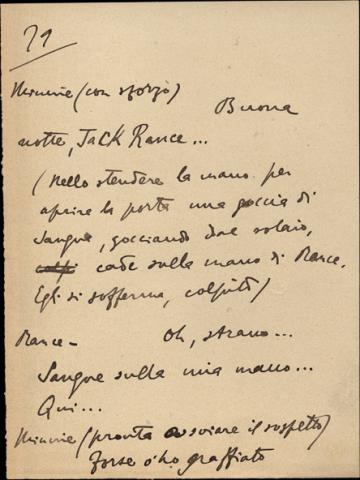 79
Minnie (con sforzo)
Buona
notte, Jack Rance...
(Nello stendere la mano per
aprire la porta una goccia di
sangue, gocciando dal solaio,
cade sulla mano di Rance.
Egli si sofferma, colpito)
Rance - Oh, strano...
Sangue sulla mia mano...
Qui...
Minnie (pronta a sviare il sospetto)
Forse v'ho graffiato